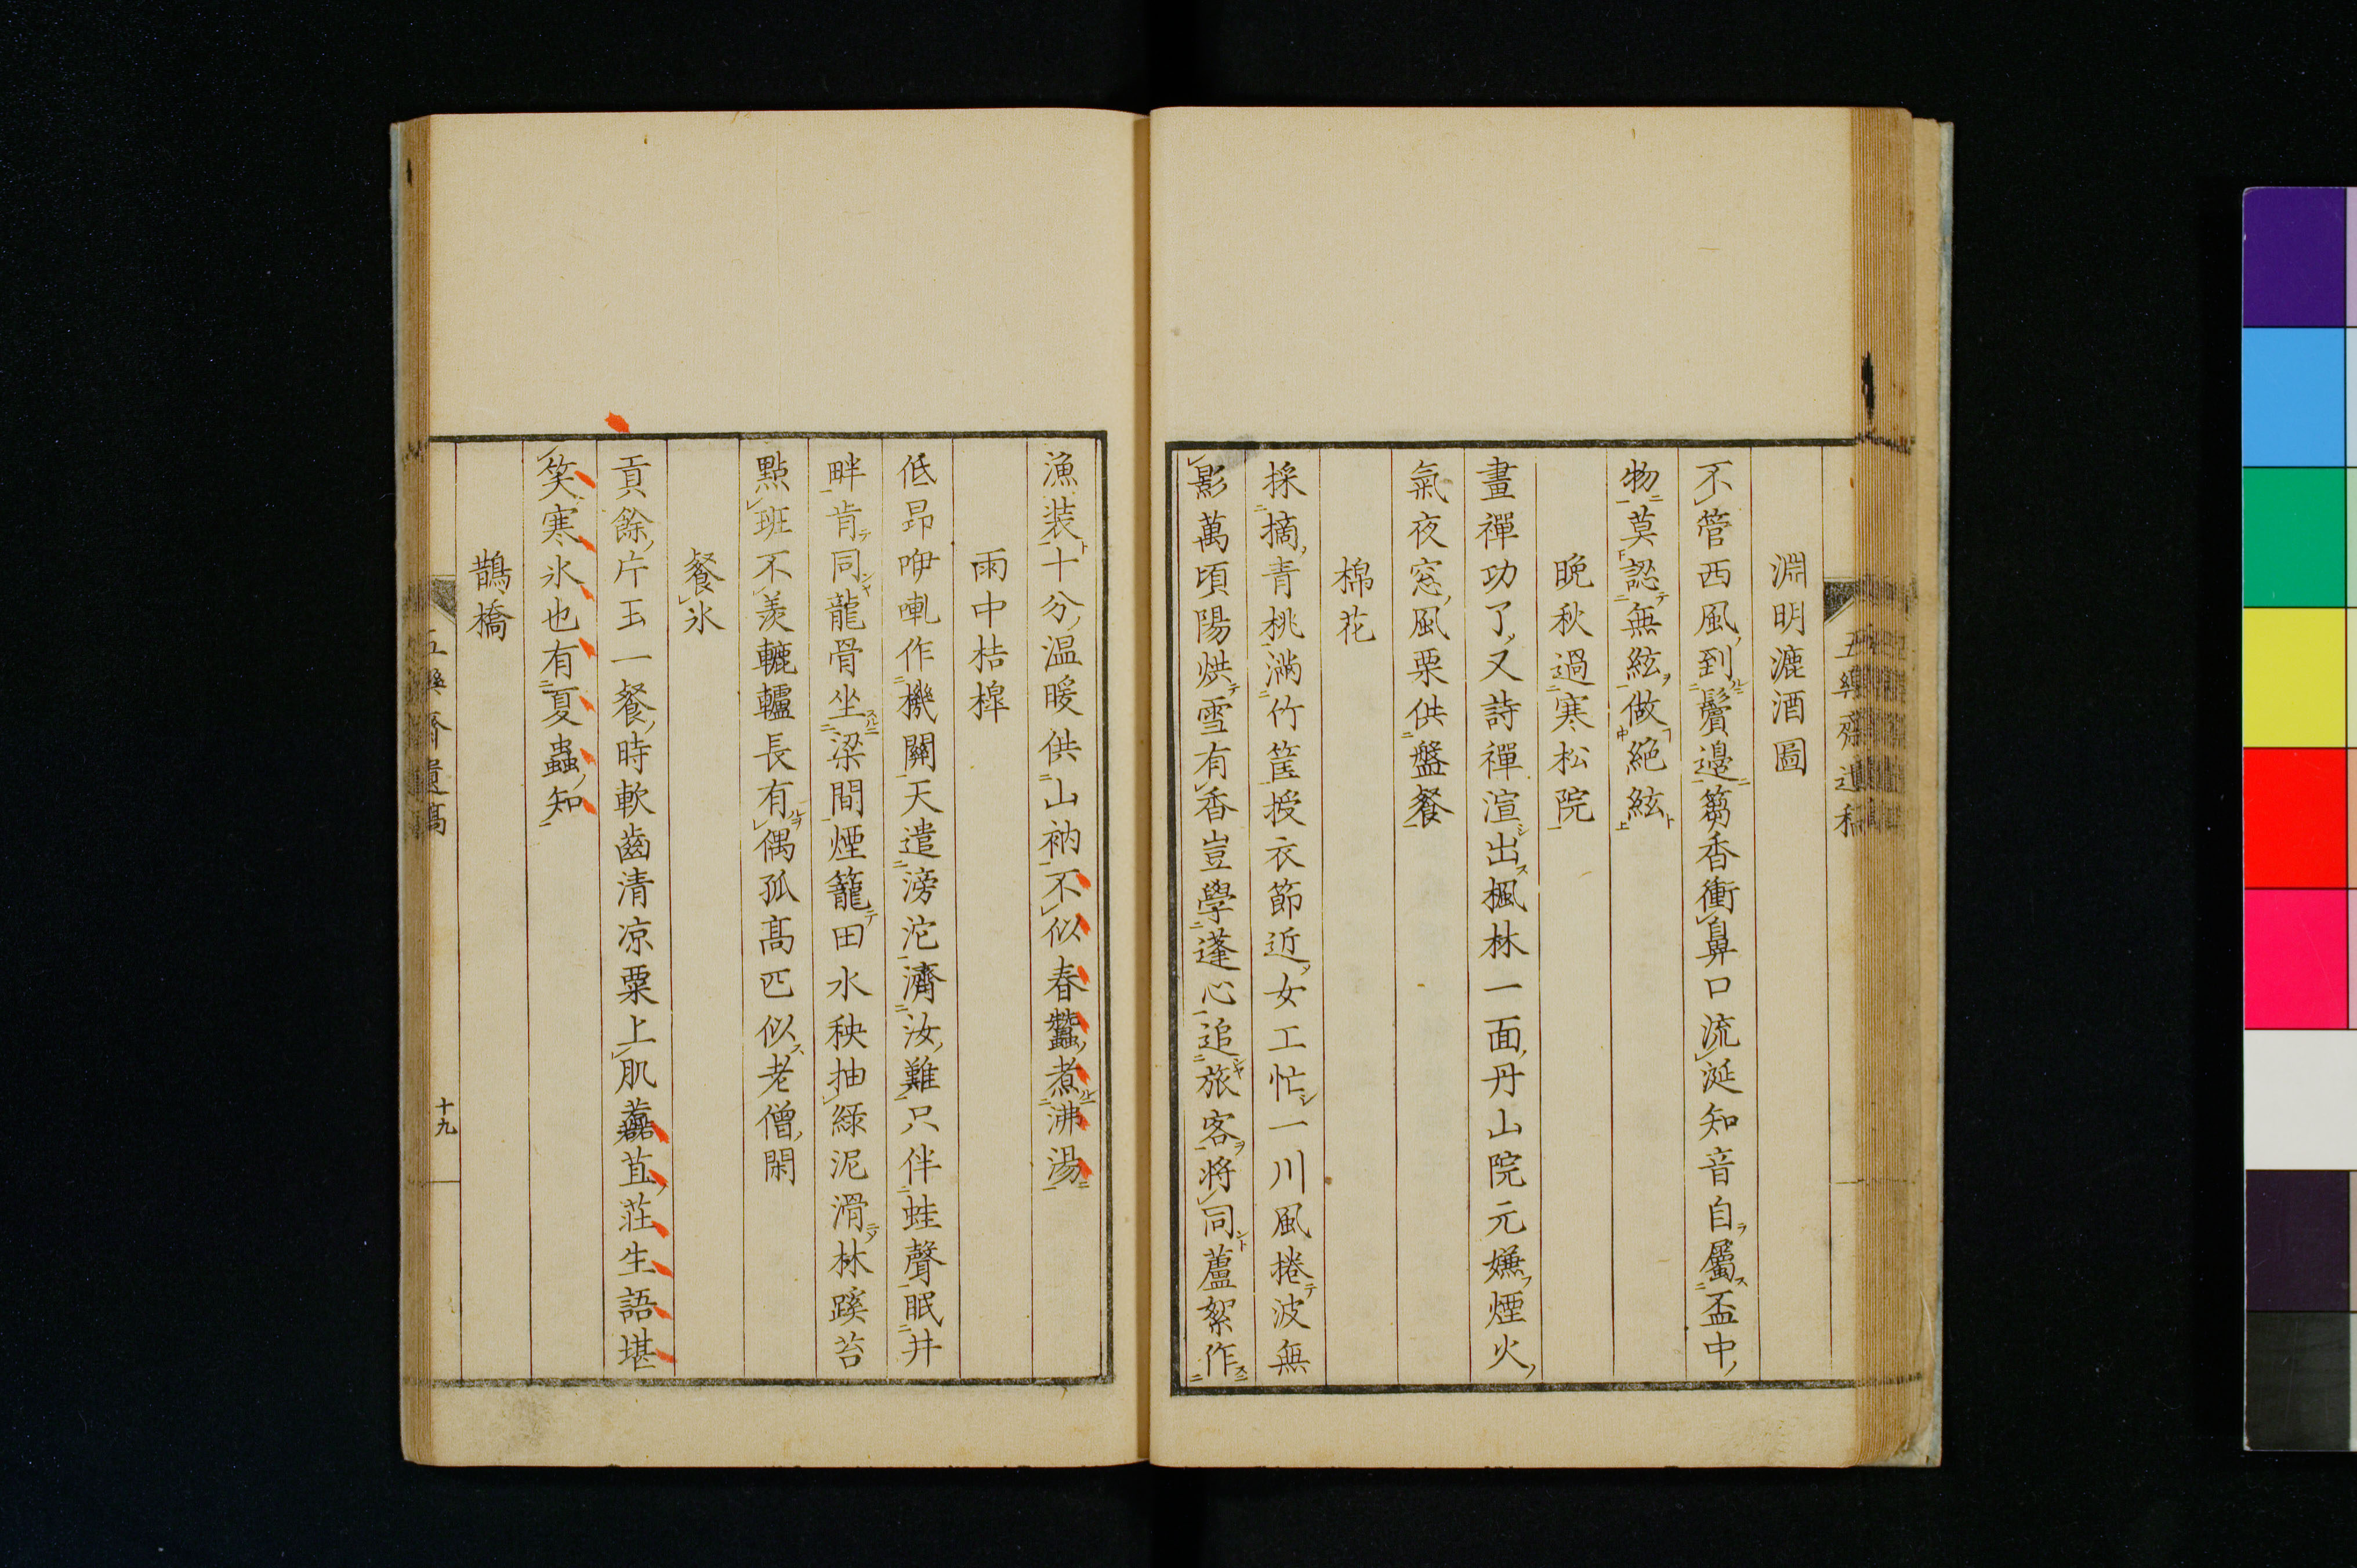 淵明漉酒圖
不管西風到鬢邊蒭香衝鼻口流涎知音自屬盃中
物莫認無絃做絶絃
晩秋過寒松院
畫禪功了又詩禪渲出楓林一面丹山院元嫌煙火
氣夜窓風栗供盤餐
棉花
採摘青桃滿竹筐授衣節近女工忙一川風捲波無
影萬頃陽烘雪有香豈學蓬心追旅客將同蘆絮作
漁裝十分温暖供山衲不似春蠶煮沸湯
雨中桔槹
低昂咿軋作機關天遣滂沱濟汝難只伴蛙聲眠井
畔肯同龍骨坐梁間煙籠田水秧抽緑泥滑林蹊苔
點班不羨轆轤長有偶孤髙匹似老僧閑
餐氷
貢餘片玉一餐時軟齒清凉粟上肌苴莊生語堪
笑寒氷也有夏蟲知
鵲橋
五樂齋遺稿
十九